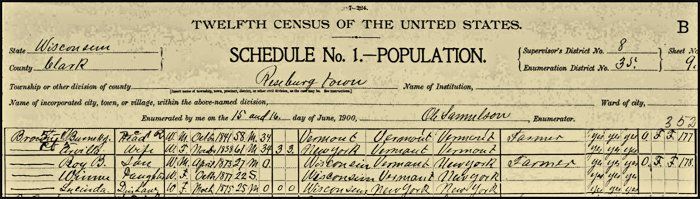 7-224.
TWELFTH CENSUS OF THE UNITED STATES.
B
State Wisconsin
SCHEDULE No. 1.—POPULATION.
Supervisor's District No. 8
Sheet No.
County Clark
Enumeration District No. 35
9
Township or other division of county Reseburg town
Name of Institution,
Name of incorporated city, town, or village, within the above-named division,
Ward of city,
Enumerated by me on the 15 and 16 day of June, 1900, Ole Samuelson Enumerator.
352
Head W M Oct 1841 58 M 34 Vermont Vermont Vermont Farmer yes yes yes O F F 177
Wife W F Nov 1838 61 M 34 3 3 New York Vermont New York yes yes yes
Roy B. Son W M April 1873 27 M 0 Wisconsin Vermont New York Farmer yes yes yes O F F 178
Winnie Daughter W F Oct 1877 22 S Wisconsin Vermont New York yes yes yes
Lucinda W F Nov 1875 25 M 0 0 0 Wisconsin New York New York yes yes yes